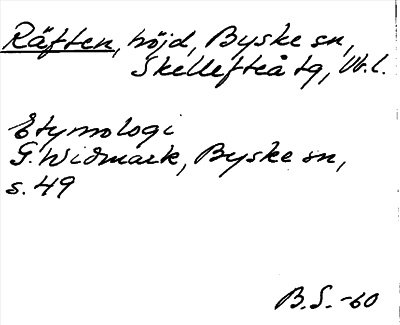 Räften, höjd, Byske sn,
Skellefteå tg, Vb.l.
Etymologi
G. Widmark, Byske sn,
s. 49
B.S. -60